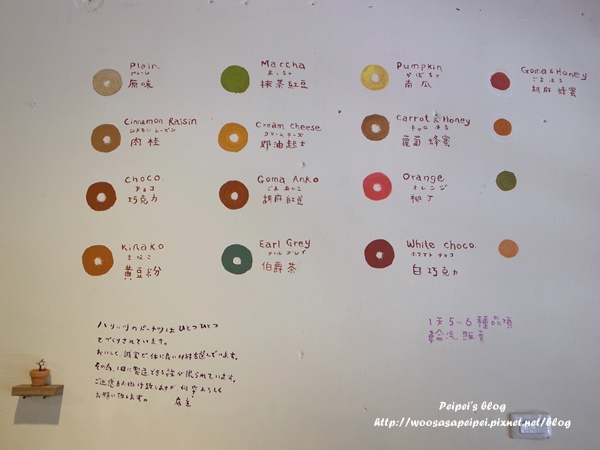 Plain
プレーン
原味
Maccha
まっちゃ
抹茶紅豆
Pumpkin
かぼちゃ
南瓜
Goma & Honey
胡麻蜂蜜
Cinnamon Raisin
シナモンレーズン
肉桂
Cream cheese
クリームチーズ
奶油起士
Carrot & Honey
蘿蔔蜂蜜
Choco.
チョコ
巧克力
Goma Anko
ごまあんこ
胡麻紅豆
Orange
オレンジ
柳丁
Kinako
きなこ
黃豆粉
Earl Grey
アールグレイ
伯爵茶
White choco.
ホワイトチョコ
白巧克力
ハリーツのドーナツはひとつひとつ
てづくりされています。
おいしく、誠実で体に良い材料を選んでいます。
その為、1日に製造できる数が限られています。
ご迷惑をお掛け致しますが、何卒よろしく
お願い致します。
店主
1天5~6種品項
輪流販賣
Peipei's blog
http://woosasapeipei.pixnet.net/blog